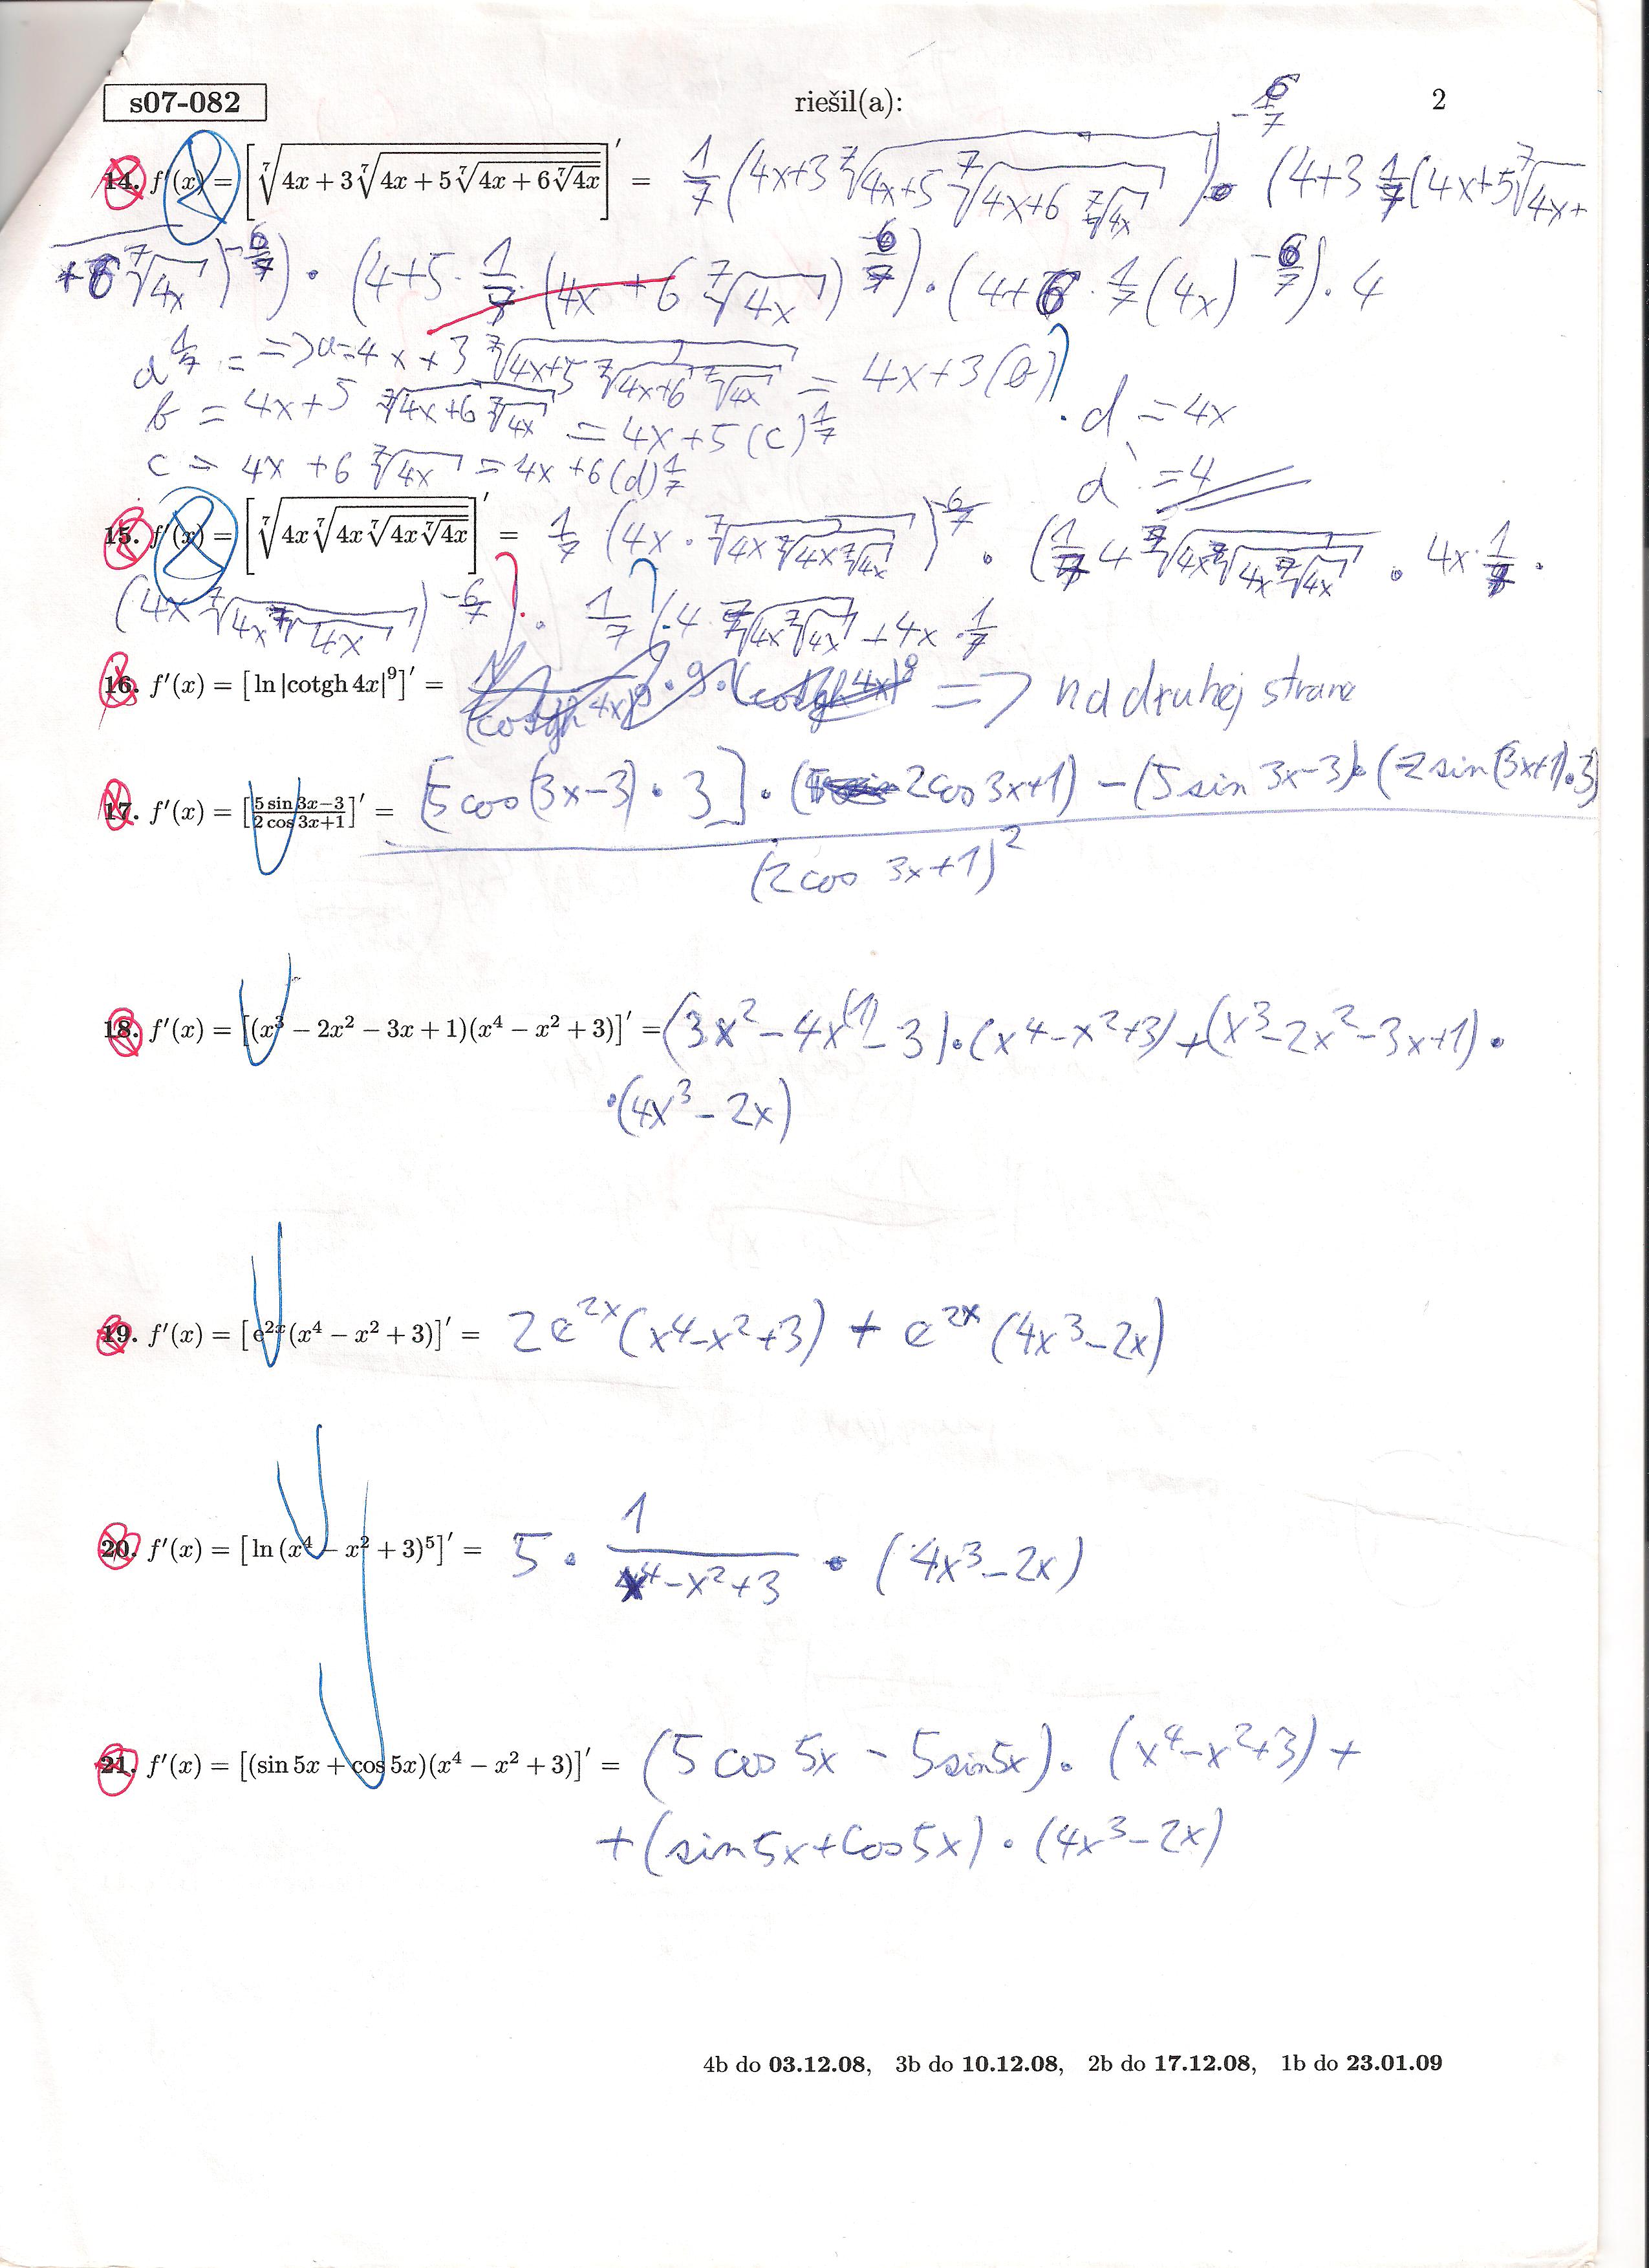 s07-082 riešil(a): 2
14. f'(x) = [⁷√(4x + 3⁷√(4x + 5⁷√(4x + 6⁷√(4x))))]' = 1/7 (4x+3 ⁷√(4x+5 ⁷√(4x+6 ⁷√(4x))))^(-6/7) · (4+3 1/7 (4x+5 ⁷√(4x+
+6 ⁷√(4x))^(-6/7)) · (4+5 · 1/7 · (4x+6 ⁷√(4x))^(-6/7)) · (4+6 · 1/7 (4x)^(-6/7)) · 4
a^(1/7) = => a = 4x + 3 ⁷√(4x+5 ⁷√(4x+6 ⁷√(4x))) = 4x+3(b)
b = 4x+5 ⁷√(4x+6 ⁷√(4x)) = 4x+5(c)^(1/7) · d = 4x
c = 4x+6 ⁷√(4x) = 4x+6(d)^(1/7) d' = 4
15. f'(x) = [⁷√(4x ⁷√(4x ⁷√(4x ⁷√(4x))))]' = 1/7 (4x · ⁷√(4x ⁷√(4x ⁷√(4x))))^(-6/7) · (1/7 4 ⁷√(4x ⁷√(4x ⁷√(4x))) · 4x · 1/7 ·
(4x ⁷√(4x ⁷√(4x)))^(-6/7) ) · 1/7 ( · 4 · ⁷√(4x ⁷√(4x)) + 4x · 1/7
16. f'(x) = [ln |cotgh 4x|⁹]' = => na druhej strane
17. f'(x) = [(5 sin 3x−3)/(2 cos 3x+1)]' = [5 cos (3x−3) · 3] · (2 cos 3x+1) − (5 sin 3x−3) · (2 sin (3x+1) · 3)
(2 cos 3x+1)²
18. f'(x) = [(x³ − 2x² − 3x + 1)(x⁴ − x² + 3)]' = (3x² − 4x⁽¹⁾ − 3) · (x⁴ − x² + 3) + (x³ − 2x² − 3x + 1) ·
· (4x³ − 2x)
19. f'(x) = [e²ˣ(x⁴ − x² + 3)]' = 2e²ˣ (x⁴ − x² + 3) + e²ˣ (4x³ − 2x)
20. f'(x) = [ln (x⁴ − x² + 3)⁵]' = 5 · 1/(x⁴ − x² + 3) · (4x³ − 2x)
21. f'(x) = [(sin 5x + cos 5x)(x⁴ − x² + 3)]' = (5 cos 5x − 5 sin 5x) · (x⁴ − x² + 3) +
+ (sin 5x + cos 5x) · (4x³ − 2x)
4b do 03.12.08, 3b do 10.12.08, 2b do 17.12.08, 1b do 23.01.09